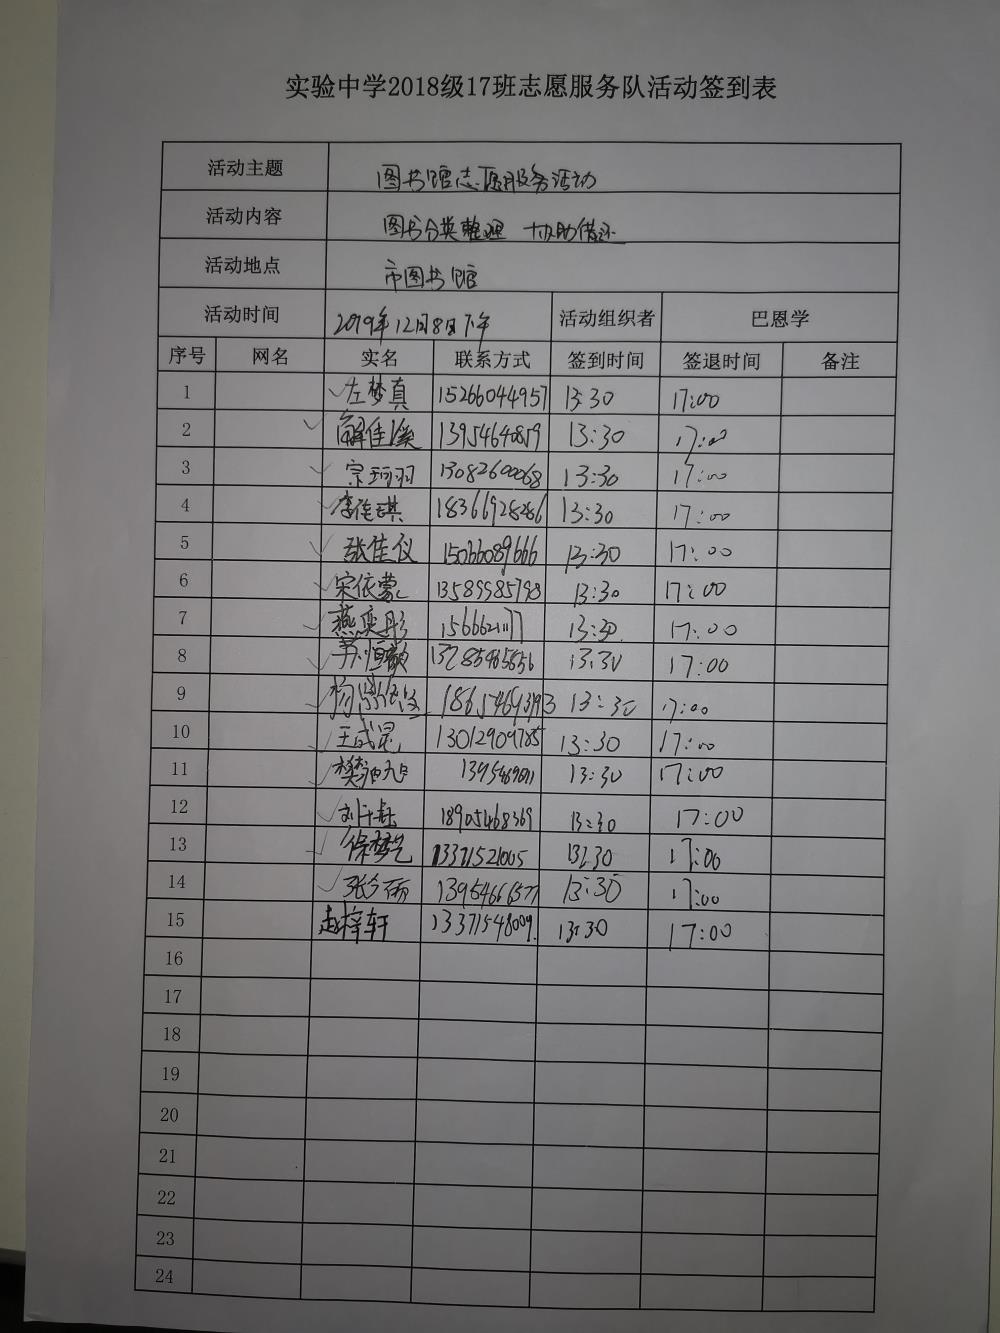 实验中学2018级17班志愿服务队活动签到表
活动主题 图书馆志愿服务活动
活动内容 图书分类整理 协助借还
活动地点 市图书馆
活动时间 2019年12月8日下午 活动组织者 巴恩学
序号 网名 实名 联系方式 签到时间 签退时间 备注
1 左梦真 15266044957 13:30 17:00
2 解佳溪 13954640859 13:30 17:00
3 宗珂羽 13082600068 13:30 17:00
4 李佳琪 18366928286 13:30 17:00
5 张佳仪 15066089666 13:30 17:00
6 宋依蒙 13589985798 13:30 17:00
7 燕奕彤 13:30 17:00
8 13785465656 13:30 17:00
9 13:30 17:00
10 王成昆 13012909785 13:30 17:00
11 13:30 17:00
12 18905468369 13:30 17:00
13 徐梦艺 13371521005 13:30 17:00
14 张今丽 13954666577 13:30 17:00
15 赵梓轩 13371548009 13:30 17:00
16
17
18
19
20
21
22
23
24